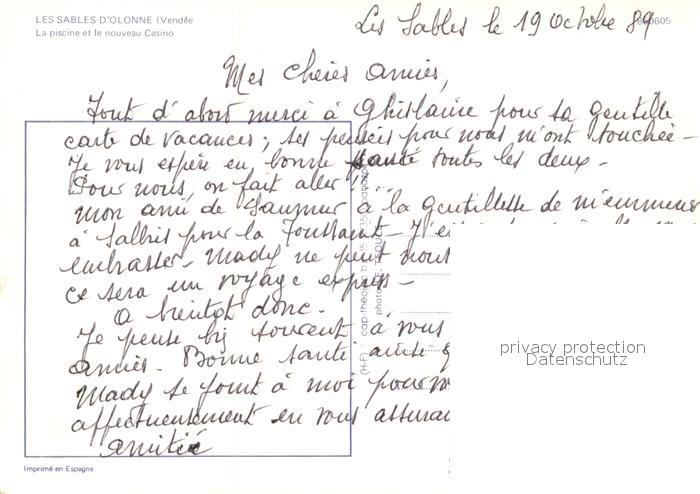 LES SABLES-D'OLONNE (Vendée
La piscine et le nouveau Casino
Les Sables le 19 Octobre 89
Mes chères amies,
Tout d'abord merci à Ghislaine pour sa gentille
carte de vacances; ses pensées pour nous m'ont touchée -
Je vous espère en bonne santé toutes les deux -
Pour nous, on fait aller !!...
Mon amie de Saumur a la gentillesse de m'emmener
à Salbris pour la Toussaint - J'es
embrasser - Mady ne peut nous
ce sera un voyage express -
A bientôt donc -
Je pense bien souvent à vous
amies - Bonne santé
Mady se joint à moi pour
affectueusement en vous assurant
amitié
Imprimé en Espagne
privacy protection
Datenschutz